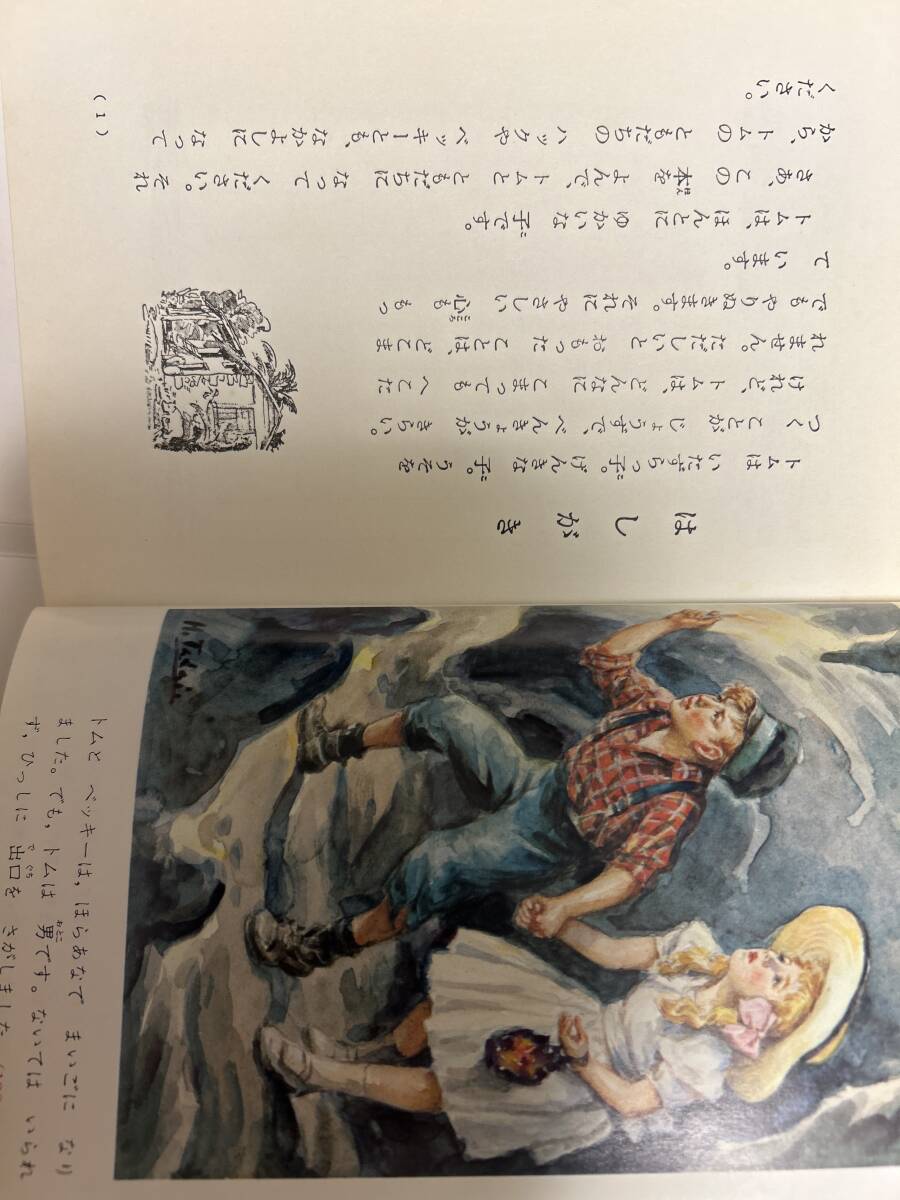 はしがき
トムは いたずらっ子。げんきな 子。うそを
つく ことが じょうずで、べんきょうが きらい。
けれど、トムは、どんなに こまっても へこた
れません。ただしいと おもった ことは、どこま
でも やりぬきます。それに やさしい 心も もっ
て います。
トムは、ほんとに ゆかいな 子です。
さあ、この 本を よんで、トムと ともだちに なって ください。それ
から、トムの ともだちの ハックや ベッキーとも、なかよしに なって
ください。
(1)
H.Tadami
トムと ベッキーは,ほらあなで まいごに なり
ました。でも,トムは 男です。ないては いられ
ず,ひっしに 出口を さがしました